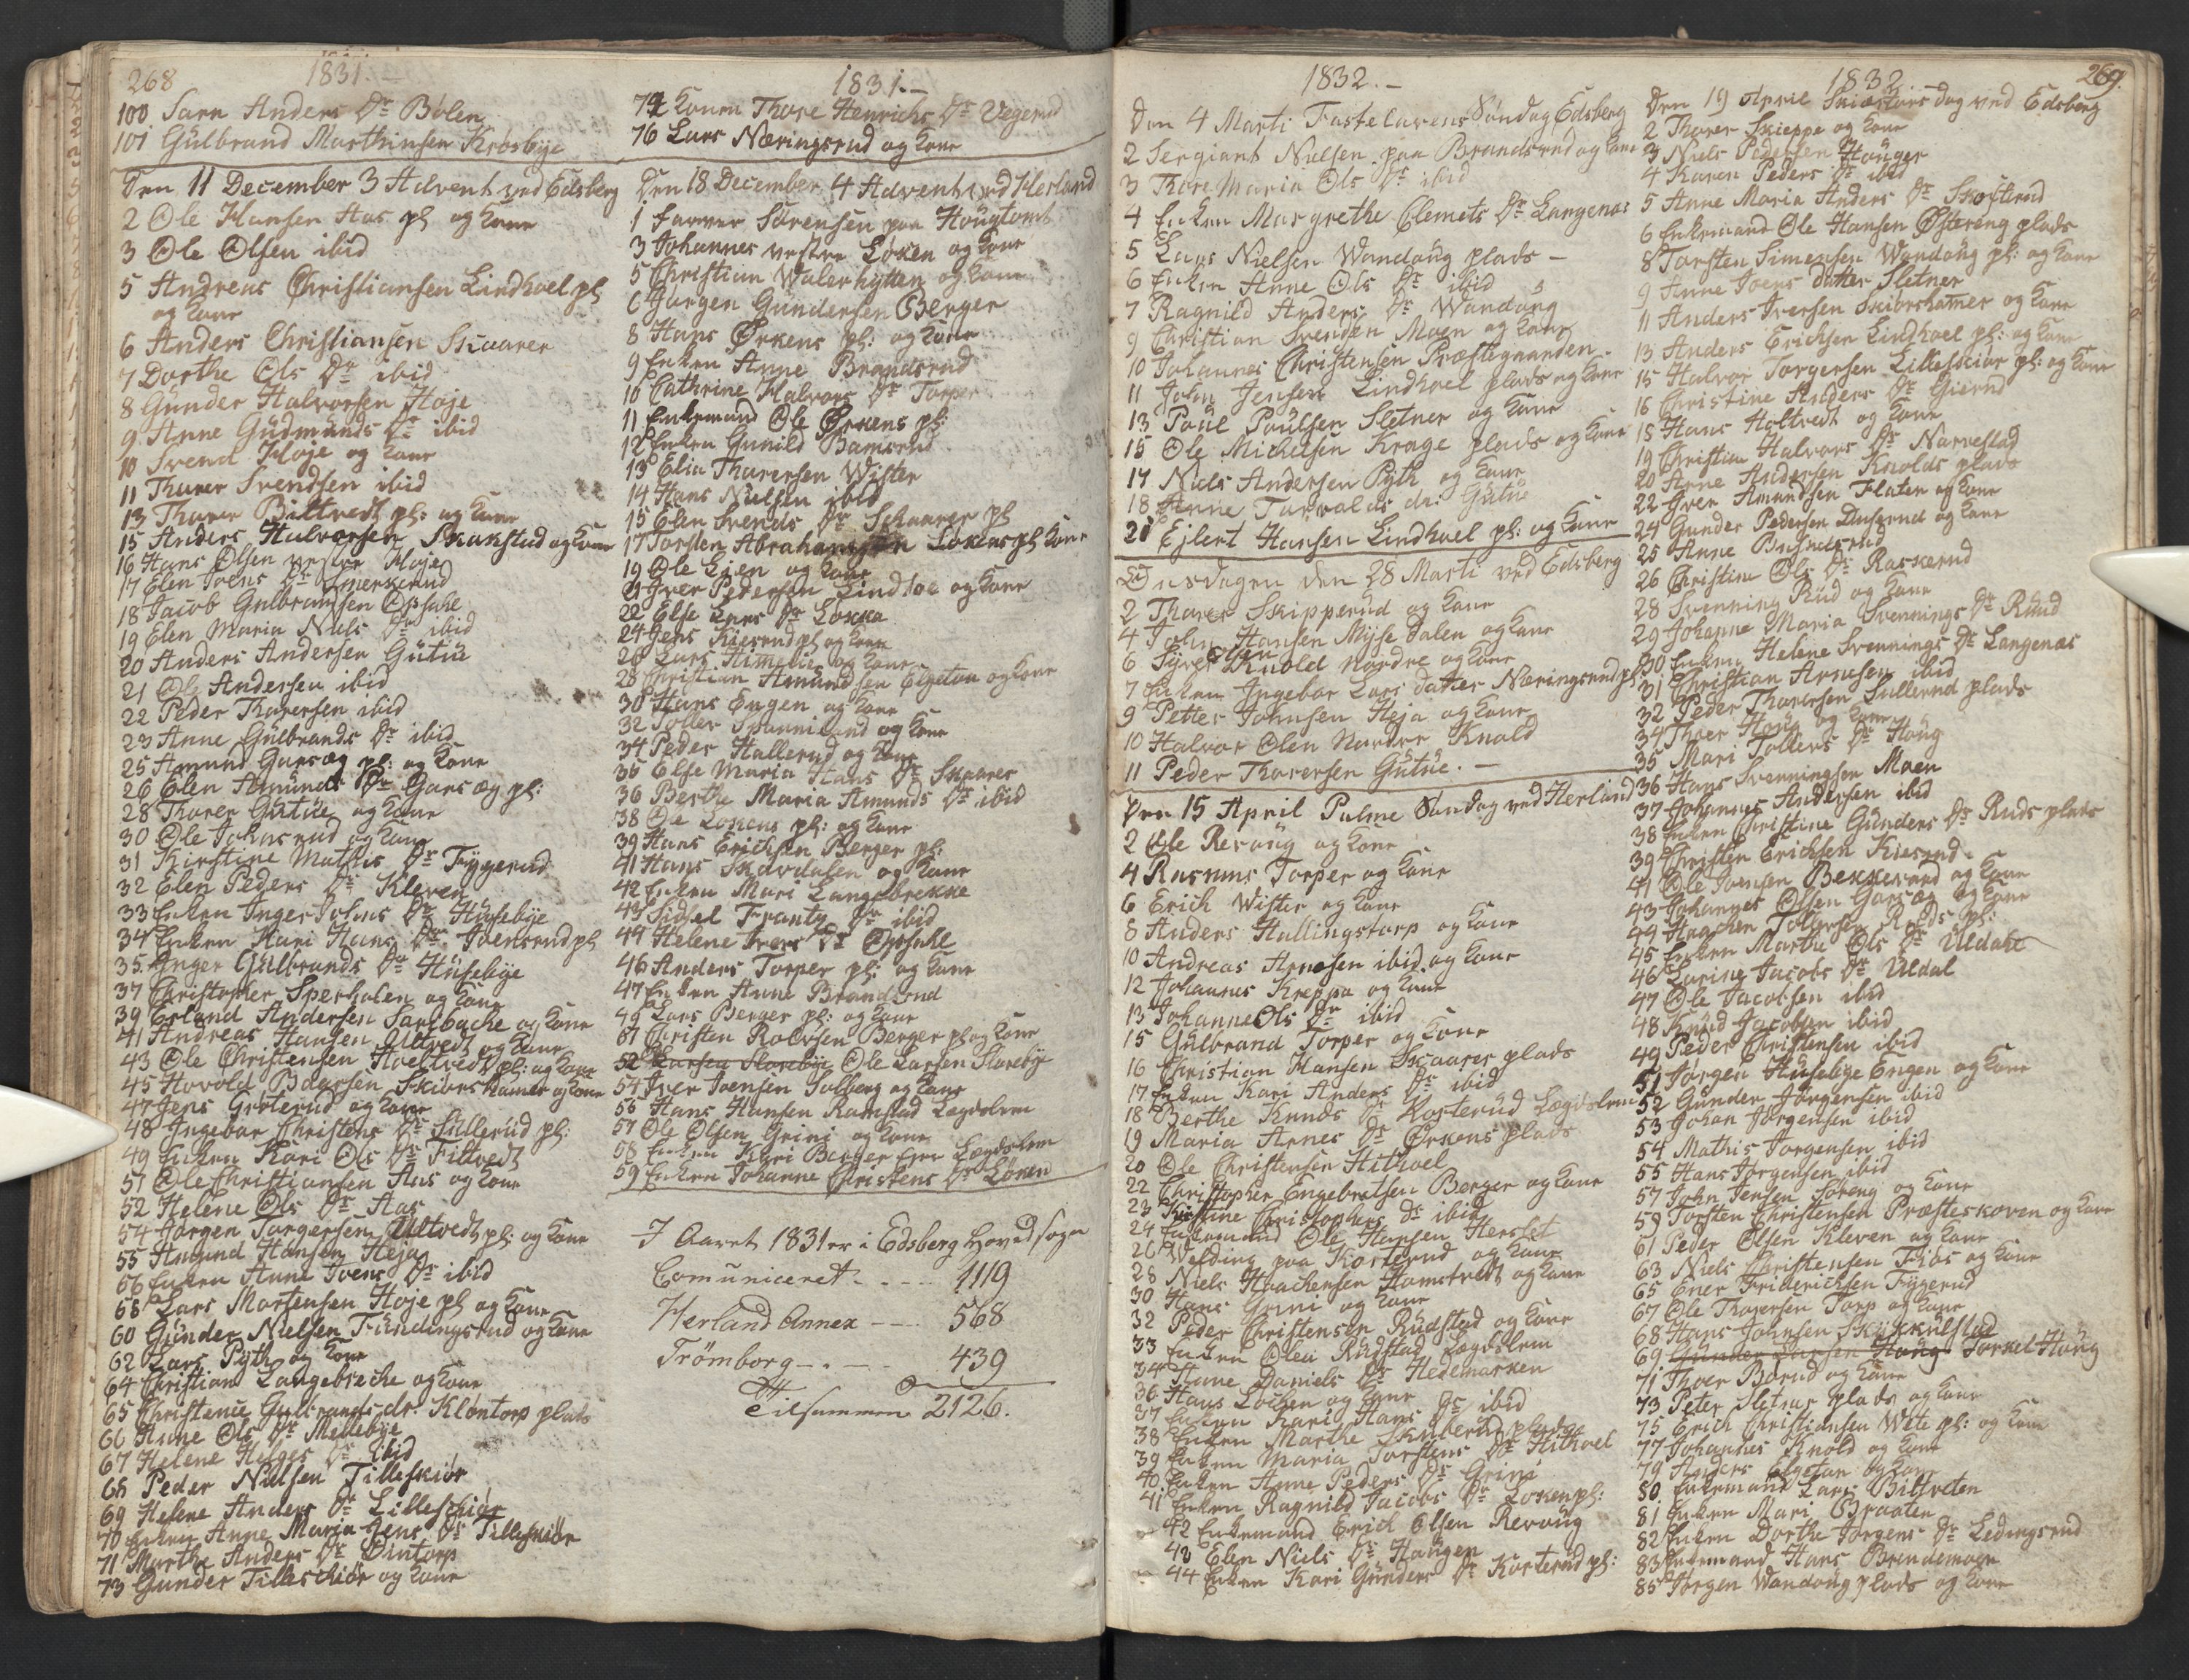 268
1831.
100 Sara Anders Dr Bølen
101 Gülbrand Marthinsen Krosbye
Den 11 December 3 Advent ved Edsberg
2 Ole Hansen Aas pl og Kone
3 Ole Olsen ibid
5 Andreas Christiansen Lindhoel pl
og Kone
6 Anders Christiansen Skaarer
7 Dorthe Ols Dr ibid
8 Günder Halvorsen Hoje
9 Anne Gudmunds Dr ibid
10 Svend Hoje og Kone
11 Thorer Svendsen ibid
13 Thorer Biltvedt pl: og Kone
15 Anders Halvorsen Skakstad og Kone
16 Hans Olsen vestre Hoje
17 Elen Joens Dr Smerkerud
18 Jacob Gulbrandsen Opsahl
19 Elen Maria Niels Dr ibid
20 Anders Andersen Gütüe
21 Ole Andersen ibid
22 Peder Thorersen ibid
23 Anne Gülbrands Dr ibid
25 Amund Garsæg pl: og Kone
26 Elen Amunds Dr Garsæg pl:
28 Thorer Gütüe og Kone
30 Ole Johnsrud og Kone
31 Kirstine Mathis Dr Fyggerud
32 Elen Peders Dr Kleven
33 Enken Inger Johns Dr Hüsebye
34 Enken Kari Hans Dr Joensrud pl
35 Inger Gülbrands Dr Hüsebye
37 Christopher Sperholen og Kone
39 Erland Andersen Sarlbache og Kone
41 Andreas Hansen Ultvedt og Kone
43 Ole Christensen Hoeltvedt pl: og Kone
45 Hovold Baarsen Skiorshamer og Kone
47 Jens Groterud og Kone
48 Ingebor Christens Dr Sülleriid pl:
49 Enken Kari Ols Dr Filtvedt
51 Ole Christiansen Aas og Kone
52 Helene Ols Dr Aas
54 Jørgen Torgersen Ultvedt pl: og Kone
55 Amund Hansen Heja
56 Enken Anne Joens Dr ibid
58 Lars Mortensen Hoje pl og Kone
60 Günder Nielsen Fundingsrud og Kone
62 Lars Pyth og Kone
64 Christian Langebreche og Kone
65 Christence Gulbrands dr. Kløntorp plads
66 Anne Ols Dr Mellebye
67 Helene Helges Dr ibid
68 Peder Nielsen Lilleskiør
69 Helene Anders Dr Lilleschiør
70 Enken Anne Maria Jens Dr Lilleskiør
71 Marthe Anders Dr Dintorp
73 Gunder Lilleschiør og Kone
1831.
74 Konen Thore Henrichs Dr Vegerud
76 Lars Næringsrud og Kone
Den 18 December 4 Advent ved Herland
1 Farver Sørensen paa Hougtomt
3 Johannes vestre Løken og Kone
5 Christian Walerhytten og Kone
6 Jørgen Gundersen Berger
8 Hans Ørkens pl: og Kone
9 Enken Anne Brandsrud
10 Cathrine Halvors Dr Torper
11 Enkemand Ole Ørkens pl:
12 Enken Gunild Bamsrud
13 Elia Thorersen Wister
14 Hans Nielsen ibid
15 Elen Svends Dr Schaarer pl
17 Torsten Abrahamsen Lokens pl Kone
19 Ole Lien og Kone
21 Iver Pedersen Lindhoe og Kone
22 Else Lars Dr Løkka
24 Jens Kiersrud pl og Kone
26 Lars Himelie og Kone
28 Christian Amundsen Elgetun og Kone
30 Hans Engen og Kone
32 Toller Spannilund og Kone
34 Peder Hallerud og Kone
35 Else Maria Hans Dr Skaarer
36 Berthe Maria Amunds Dr ibid
38 Ole Lokens pl: og Kone
39 Hans Erichsen Berger pl:
41 Hans Skovdalen og Kone
42 Enken Mari Langebrekke
43 Sidsel Frantz Dr ibid
44 Helene Ivers Dr Opsahl
46 Anders Torper pl: og Kone
47 Enken Anne Brandsrud
49 Lars Berger pl: og Kone
51 Christen Rolvsen Berger pl og Kone
52 Larsen Slorebye Ole Larsen Slorebye
54 Iver Joensen Solberg og Kone
56 Hans Hansen Ramstad Lægdslem
57 Ole Olsen Grini og Kone
58 Enken Kari Berger Eier Lægdslem
59 Enken Johanne Christens Dr Løken
I Aaret 1831 er i Edsberg Hoved sogn
Comuniceret - - - - 1119
Herland Annex - - - 568
Trömborg - - - - 439
Tilsammen 2126.
1832.
Den 4 Marti Fastelavens Søndag Edsberg
2 Sergiant Nielsen paa Brandsrud og Kone
3 Thore Maria Ols Dr ibid
4 Enken Margrethe Clemets Dr Langenæs
5 Lars Nielsen Wandoüg plads -
6 Enken Anne Ols Dr ibid
7 Ragnild Anders Dr Wandoüg
9 Christian Svendsen Moen og Kone
10 Johannes Christensen Præstegaarden
11 John Jensen Lindhoel plads og Kone
13 Poül Poülsen Sletner og Kone
15 Ole Michelsen Krage plads og Kone
17 Niels Andersen Pyth og Kone
18 Anne Torvalds dr: Gütüe
20 Ejlert Hansen Lindhoel pl: og Kone
Onsdagen den 28 Marti ved Edsberg
2 Thorer Skipperud og Kone
4 John Hansen Mysse dalen og Kone
6 Syver Olsen Knold Nordre og Kone
7 Enken Ingebor Lars datter Næringsrud pl
9 Petter Johnsen Heja og Kone
10 Halvor Olsen Nordre Knold
11 Peder Thorersen Gütüe. -
Den 15 April Palme Søndag ved Herland
2 Ole Revoüg og Kone
4 Rasmus Torper og Kone
6 Erich Wister og Kone
8 Anders Hallingstorp og Kone
10 Andreas Arnesen ibid og Kone
12 Johannes Kreppa og Kone
13 Johanne Ols Dr ibid
15 Gülbrand Torper og Kone
16 Christian Hansen Skaarer plads
17 Enken Kari Anders Dr ibid
18 Berthe Knuds Dr Kosterüd Lægdslem
19 Maria Arnes Dr Ørkens plads
20 Ole Christensen Hithoel
22 Christopher Engebretsen Berger og Kone
23 Kirstine Christophers Dr ibid
24 Enkemand Ole Hansen Herslet
26 Welding paa Kosterud og Kone
28 Niels Haachensen Homstvedt og Kone
30 Hans Grini og Kone
32 Peder Christensen Rüdstad og Kone
33 Enken Olea Rüdstad Lægdslem
34 Anne Daniels Dr Hedemarken
36 Hans Lochen og Kone
37 Enken Kari Hans Dr ibid
38 Enken Marthe Sküllerüd plads
39 Enken Maria Torstens Dr Hithoel
40 Enken Anne Peders Dr Grini
41 Enken Ragnild Jacobs Dr Loken pl:
42 Enkemand Erich Olsen Revoüg
43 Elen Niels Dr Haügen
44 Enken Kari Günders Dr Kosterüd pl:
1832
269.
Den 19 April Skiærtors dag ved Edsberg
2 Thorer Skieppe og Kone
3 Niels Pedersen Haüger
4 Karen Peders Dr ibid
5 Anne Maria Anders Dr Skofterud
6 Enkemand Ole Hansen Østereng plads
8 Torsten Simensen Wandoüg pl: og Kone
9 Anne Joens datter Sletner
11 Anders Iversen Skiorshamer og Kone
13 Anders Erichsen Lindhoel pl: og Kone
15 Halvor Torgersen Lilleskiør pl: og Kone
16 Christine Anders Dr Gierud
18 Hans Holtvedt og Kone
19 Christian Halvors Dr Narvestad
20 Arne Andersen Knolds plads
22 Iver Amundsen Flaten og Kone
24 Gunder Pedersen Dusserud og Kone
25 Anne Busundsrud
26 Christine Ols Dr Raskerud
28 Svenning Rüd og Kone
29 Johanne Maria Svennings Dr Rüüd
30 Enken Helene Svennings Dr Langenæs
31 Christian Arnesen ibid
32 Peder Thorersen Süllerud plads
34 Thoer Houg og Kone
35 Mari Tollers Dr Houg
36 Hans Svenningsen Moen
37 Johannes Andersen ibid
38 Enken Christine Günders Dr Ruds plads
39 Christen Erichsen Kiesrud
41 Ole Joensen Bekkevard og Kone
43 Johannes Olsen Garsæg og Kone
44 Haachen Tollersen Ruds pl:
45 Enken Marthe Ols Dr Üldahl
46 Larine Jacobs Dr Üldal
47 Ole Jacobsen ibid
48 Knüd Jacobsen ibid
49 Peder Christensen ibid
51 Jørgen Hüsebye Engen og Kone
52 Günder Jørgensen ibid
53 Johan Jørgensen ibid
54 Mathis Jørgensen ibid
55 Hans Jørgensen ibid
57 John Jensen Søreng og Kone
59 Torsten Christensen Præsteskoven og Kone
61 Peder Olsen Kleven og Kone
63 Niels Christensen Fløs og Kone
65 Ener Friderichsen Fygerud
67 Ole Thorersen Torp og Kone
68 Hans Johnsen Skükkülstad
69 Günder Larsen Haug Torkel Haüg
71 Thoer Borud og Kone
73 Peter Sletner plads og Kone
75 Erich Christiansen Wete pl: og Kone
77 Johannes Knold og Kone
79 Anders Elgetun og Kone
80 Enkemand Lars Biltveten
81 Enken Mari Braaten
82 Enken Dorthe Jørgens Dr Ledingsrud
83 Enkemand Hans Brendemoen
85 Jørgen Wandoüg plads og Kone